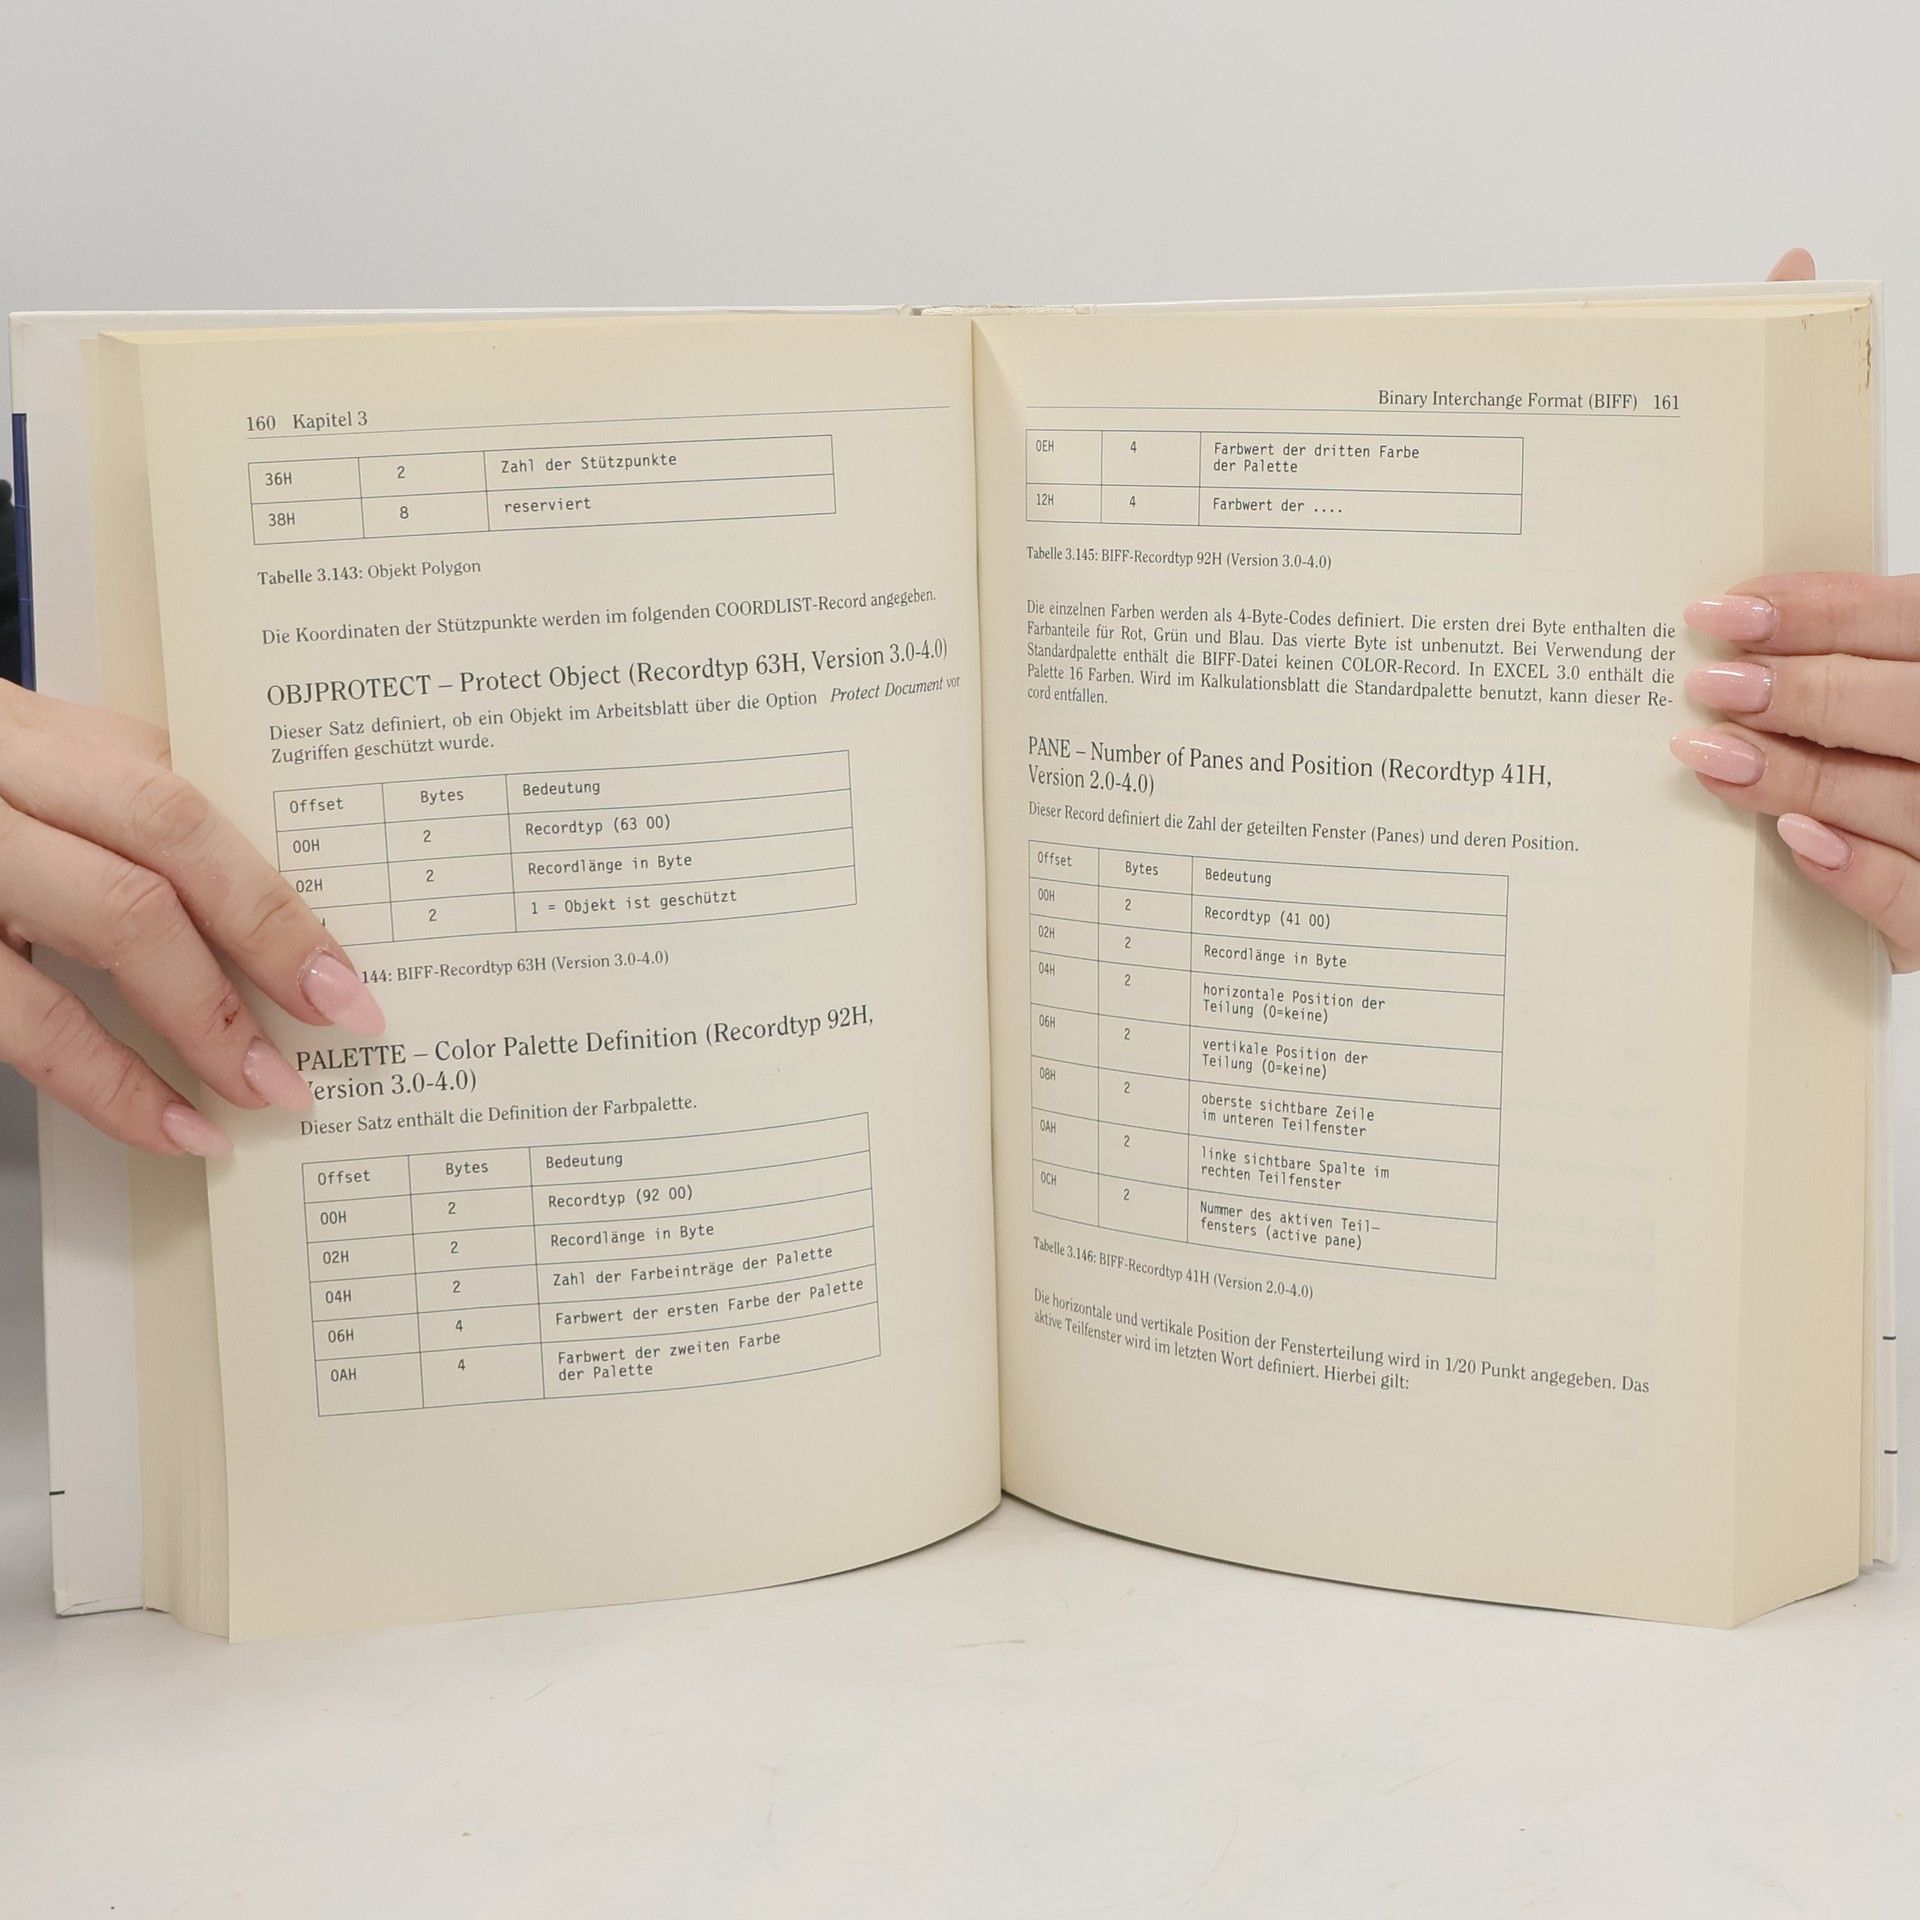 160 Kapitel 3
36H 2 Zahl der Stützpunkte
38H 8 reserviert
Tabelle 3.143: Objekt Polygon
Die Koordinaten der Stützpunkte werden im folgenden COORDLIST-Record angegeben.
OBJPROTECT – Protect Object (Recordtyp 63H, Version 3.0-4.0)
Dieser Satz definiert, ob ein Objekt im Arbeitsblatt über die Option Protect Document vor
Zugriffen geschützt wurde.
Offset Bytes Bedeutung
00H 2 Recordtyp (63 00)
02H 2 Recordlänge in Byte
H 2 1 = Objekt ist geschützt
144: BIFF-Recordtyp 63H (Version 3.0-4.0)
PALETTE – Color Palette Definition (Recordtyp 92H,
ersion 3.0-4.0)
Dieser Satz enthält die Definition der Farbpalette.
Offset Bytes Bedeutung
00H 2 Recordtyp (92 00)
02H 2 Recordlänge in Byte
04H 2 Zahl der Farbeinträge der Palette
06H 4 Farbwert der ersten Farbe der Palette
0AH 4 Farbwert der zweiten Farbe
der Palette
Binary Interchange Format (BIFF) 161
0EH 4 Farbwert der dritten Farbe
der Palette
12H 4 Farbwert der ....
Tabelle 3.145: BIFF-Recordtyp 92H (Version 3.0-4.0)
Die einzelnen Farben werden als 4-Byte-Codes definiert. Die ersten drei Byte enthalten die
Farbanteile für Rot, Grün und Blau. Das vierte Byte ist unbenutzt. Bei Verwendung der
Standardpalette enthält die BIFF-Datei keinen COLOR-Record. In EXCEL 3.0 enthält die
Palette 16 Farben. Wird im Kalkulationsblatt die Standardpalette benutzt, kann dieser Re-
cord entfallen.
PANE – Number of Panes and Position (Recordtyp 41H,
Version 2.0-4.0)
Dieser Record definiert die Zahl der geteilten Fenster (Panes) und deren Position.
Offset Bytes Bedeutung
00H 2 Recordtyp (41 00)
02H 2 Recordlänge in Byte
04H 2 horizontale Position der
Teilung (0=keine)
06H 2 vertikale Position der
Teilung (0=keine)
08H 2 oberste sichtbare Zeile
im unteren Teilfenster
0AH 2 linke sichtbare Spalte im
rechten Teilfenster
0CH 2 Nummer des aktiven Teil–
fensters (active pane)
Tabelle 3.146: BIFF-Recordtyp 41H (Version 2.0-4.0)
Die horizontale und vertikale Position der Fensterteilung wird in 1/20 Punkt angegeben. Das
aktive Teilfenster wird im letzten Wort definiert. Hierbei gilt: